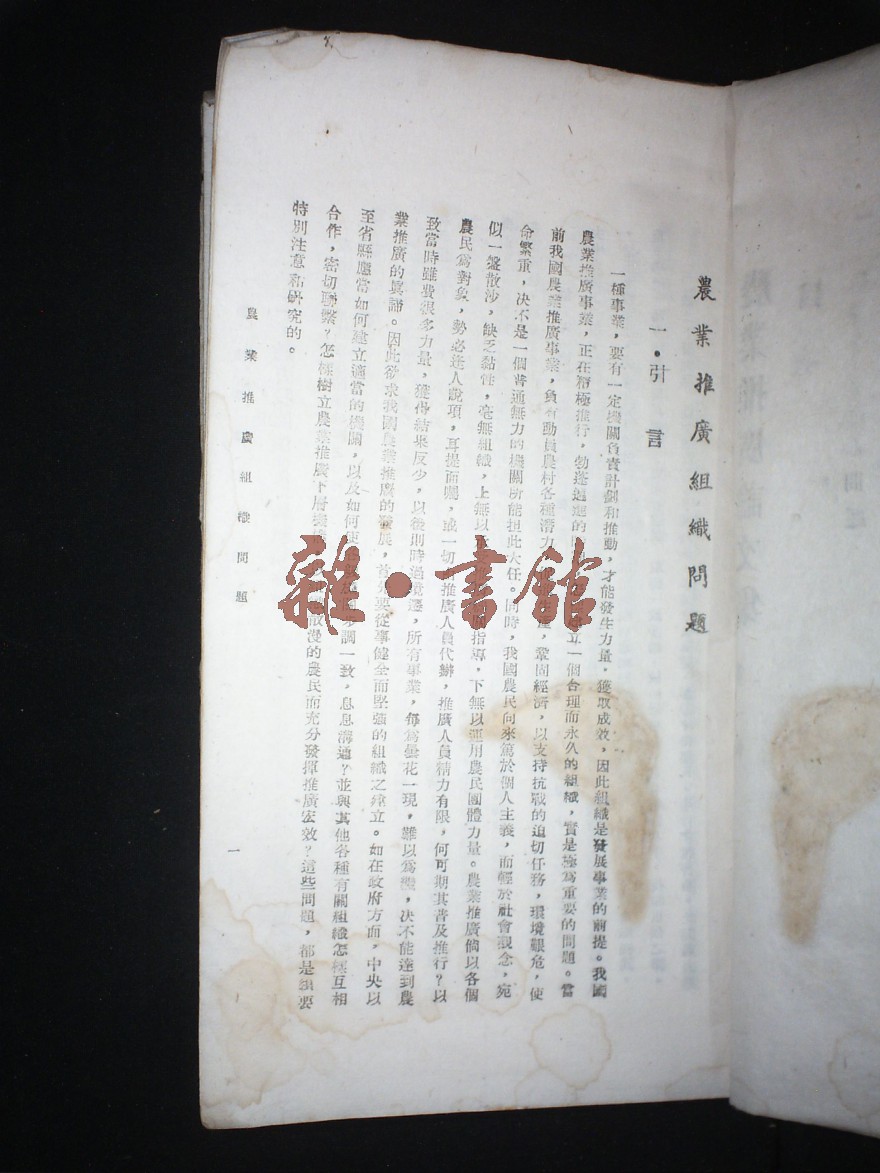 農業推廣組織問題
一•引言
一種事業，要有一定機關負責計劃和推動，才能發生力量，獲取成效，因此組織是發展事業的前提。我國
農業推廣事業，正在積極推行，勃蓬邁進的立一個合理而永久的組織，實是極為重要的問題。當
前我國農業推廣事業，負有動員農村各種潛力，鞏固經濟，以支持抗戰的迫切任務，環境艱危，使
命繁重，決不是一個普通無力的機關所能担此大任。同時，我國農民向來篤於個人主義，而輕於社會觀念，宛
似一盤散沙，缺乏黏性，毫無組織，上無以指導，下無以運用農民團體力量。農業推廣倘以各個
農民為對象，勢必逢人說項，耳提面囑，或一切由推廣人員代辦，推廣人員精力有限，何可期其普及推行？以
致當時雖費很多力量，獲得結果反少，以後則時過境遷，所有事業，每為曇花一現，難以為繼，決不能達到農
業推廣的真諦。因此欲求我國農業推廣的發展，首先要從事健全而堅強的組織之建立。如在政府方面，中央以
至省縣應當如何建立適當的機關，以及如何使調一致，息息溝通？並與其他各種有關組織怎樣互相
合作，密切聯繫？怎樣樹立農業推廣下層散漫的農民而充分發揮推廣宏效？這些問題，都是須要
特別注意和研究的。
農業推廣組織問題
一
雜•書館